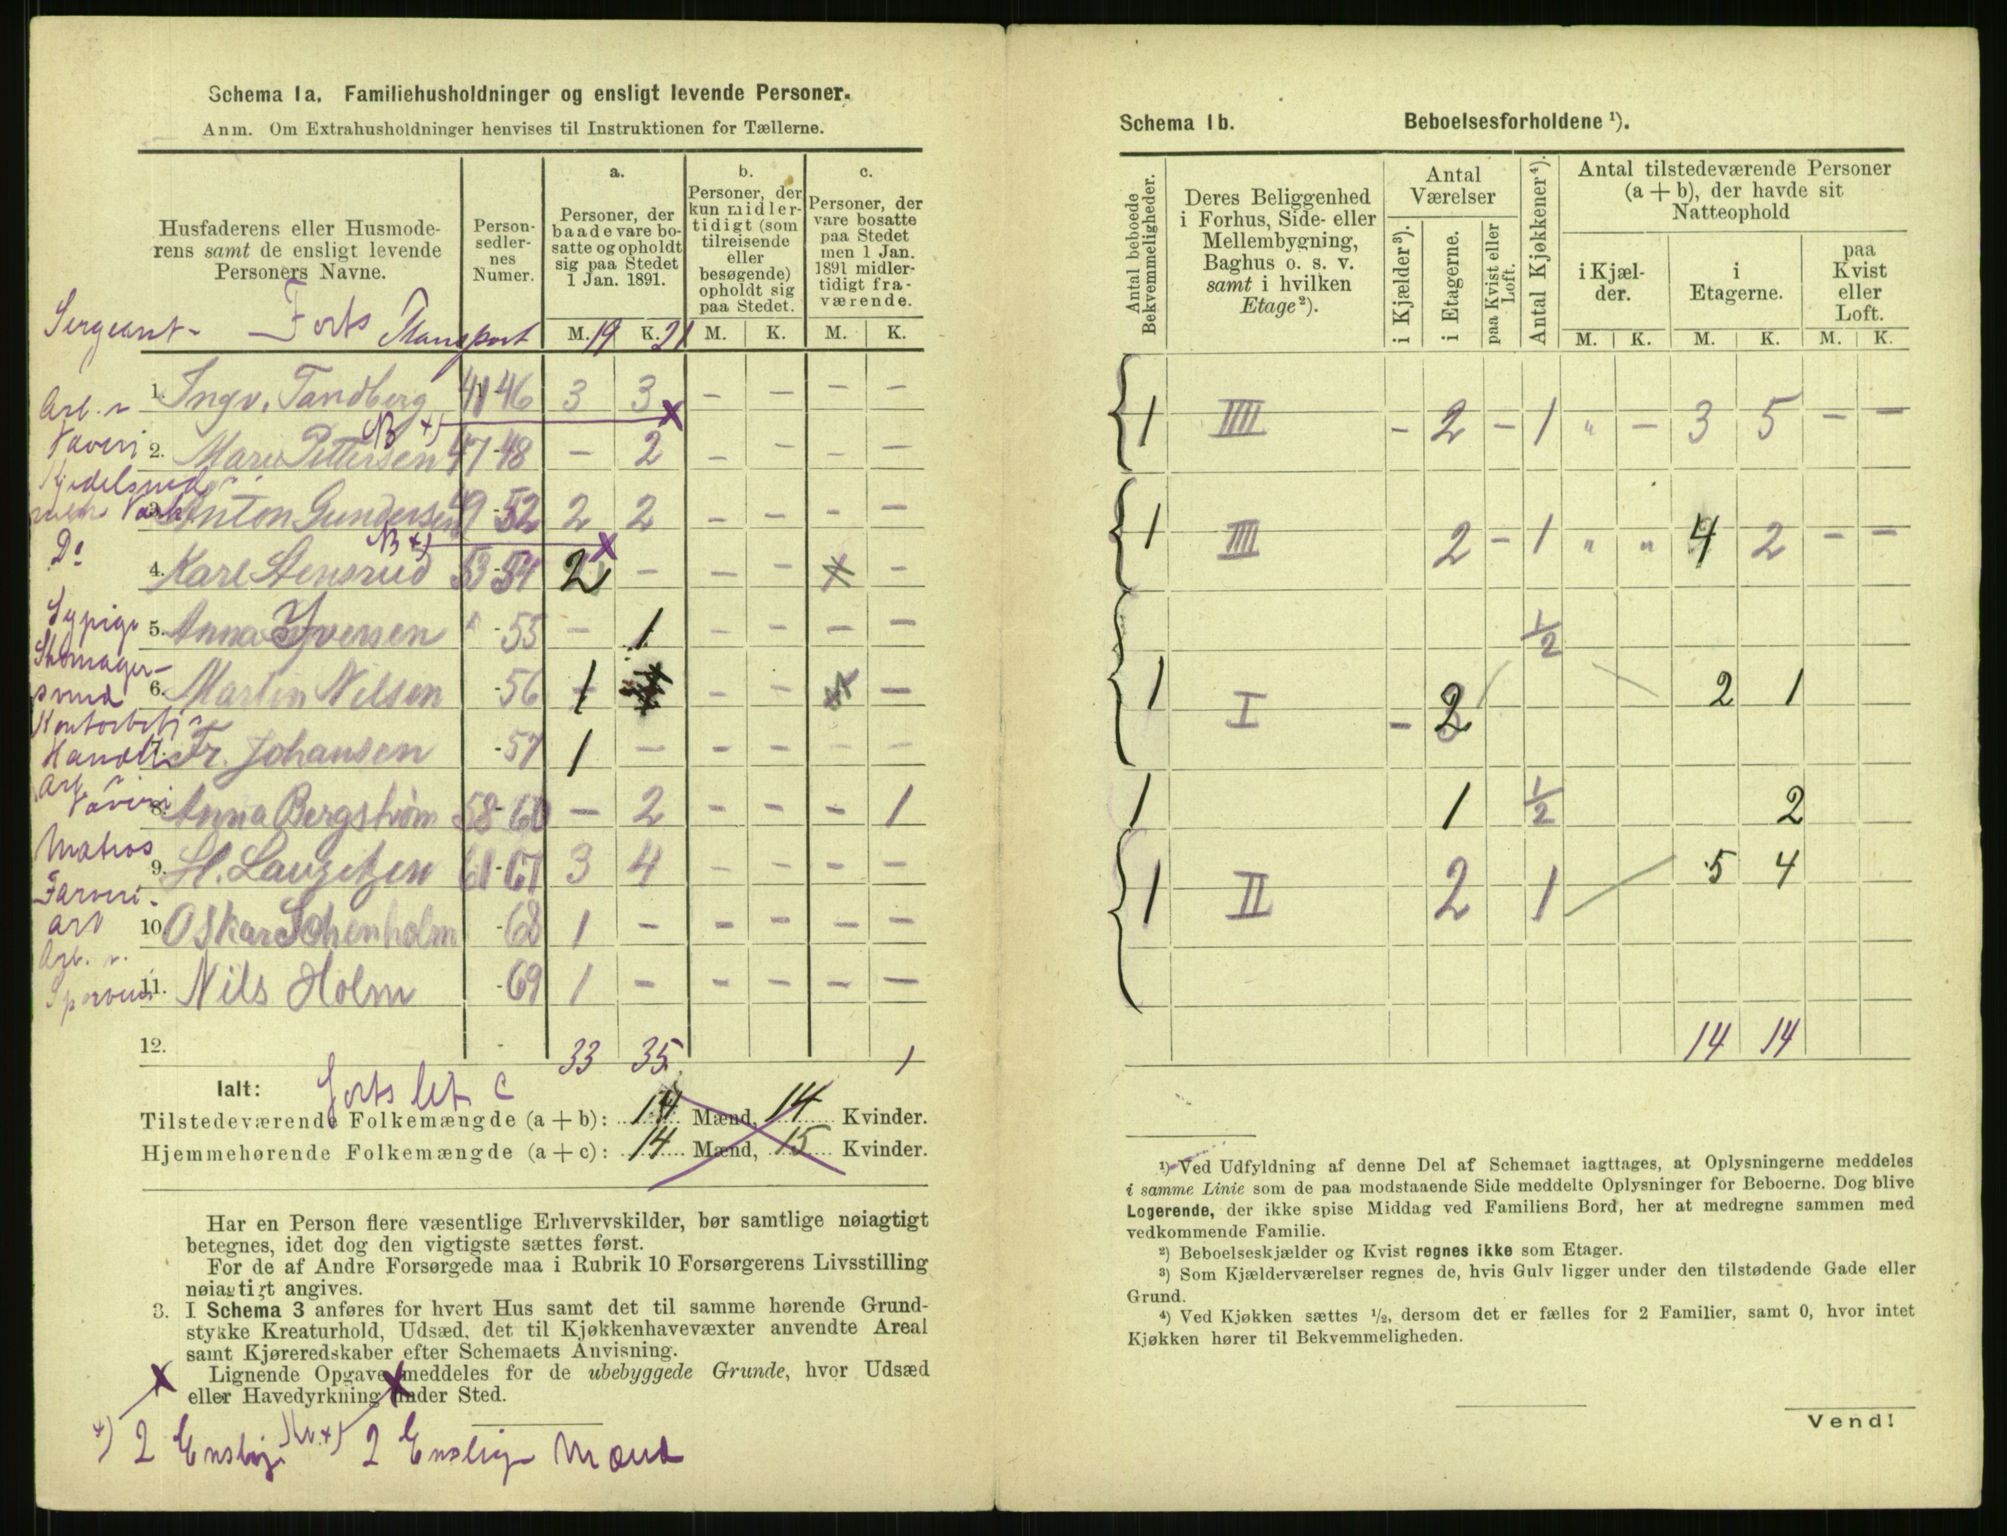 Schema 1a. Familiehusholdninger og ensligt levende Personer.
Anm. Om Extrahusholdninger henvises til Instruktionen for Tællerne.
Husfaderens eller Husmoderens samt de ensligt levende Personers Navne.
Personsedlernes Numer.
a. Personer, der baade vare bosatte og opholdt sig paa Stedet 1 Jan. 1891.
b. Personer, der kun midlertidigt (som tilreisende eller besøgende) opholdt sig paa Stedet.
c. Personer, der vare bosatte paa Stedet men 1 Jan. 1891 midlertidigt fraværende.
Sergeant - Forts Transport M. 19 K. 21 M. K. M. K.
1. Ingv. Tandberg 41-46 3 3 - - - -
Arb. v Væveri NB +)
2. Marie Pettersen 47-48 - 2 - - - -
Kjedelsmed
3. Anton Gundersen 49-52 2 2 - - - -
Do NB +)
4. Karl Stensrud 53-54 2 - - - x -
Sypige
5. Anna Iversen " -55 - 1 - - - -
Skomagersvend
6. Martin Nilsen -56 1 - - -
7. Fr. Johansen -57 1 - - - - -
Arb. v Væveri
8. Anna Bergstrøm 58-60 - 2 - - - 1
Matros
9. H. Lauritzen 61-67 3 4 - - - -
Farveri-arb
10. Oskar Schenholm -68 1 - - - - -
Arb. v.
11. Nils Holm -69 1 - - - - -
12. 33 35 1
Ialt: Forts lit C
Tilstedeværende Folkemængde (a + b): 14 Mænd, 14 Kvinder.
Hjemmehørende Folkemængde (a + c): 14 Mænd, 15 Kvinder.
Har en Person flere væsentlige Erhvervskilder, bør samtlige nøiagtigt
betegnes, idet dog den vigtigste sættes først.
For de af Andre Forsørgede maa i Rubrik 10 Forsørgerens Livsstilling
nøiagtigt angives.
3. I Schema 3 anføres for hvert Hus samt det til samme hørende Grund-
stykke Kreaturhold, Udsæd, det til Kjøkkenhavevæxter anvendte Areal
samt Kjøreredskaber efter Schemaets Anvisning.
Lignende Opgave meddeles for de ubebyggede Grunde, hvor Udsæd
eller Havedyrkning finder Sted.
+) 2 Enslige 2 Enslige Mænd
Schema 1b. Beboelsesforholdene ¹).
Antal beboede Bekvemmeligheder.
Deres Beliggenhed i Forhus, Side- eller Mellembygning, Baghus o. s. v. samt i hvilken Etage²).
Antal Værelser
i Kjælder³).
i Etagerne.
paa Kvist eller Loft.
Antal Kjøkkener⁴).
Antal tilstedeværende Personer (a + b), der havde sit Natteophold
i Kjælder.
i Etagerne.
paa Kvist eller Loft.
M. K. M. K. M. K.
1 IIII - 2 - 1 " - 3 5 - -
1 IIII 2 - 1 " " 4 2 - -
½
1 I - 2 2 1
1 1 ½ 2
1 II 2 1 5 4
14 14
¹) Ved Udfyldning af denne Del af Schemaet iagttages, at Oplysningerne meddeles
i samme Linie som de paa modstaaende Side meddelte Oplysninger for Beboerne. Dog blive
Logerende, der ikke spise Middag ved Familiens Bord, her at medregne sammen med
vedkommende Familie.
²) Beboelseskjælder og Kvist regnes ikke som Etager.
³) Som Kjælderværelser regnes de, hvis Gulv ligger under den tilstødende Gade eller
Grund.
⁴) Ved Kjøkken sættes ½, dersom det er fælles for 2 Familier, samt 0, hvor intet
Kjøkken hører til Bekvemmeligheden.
Vend!